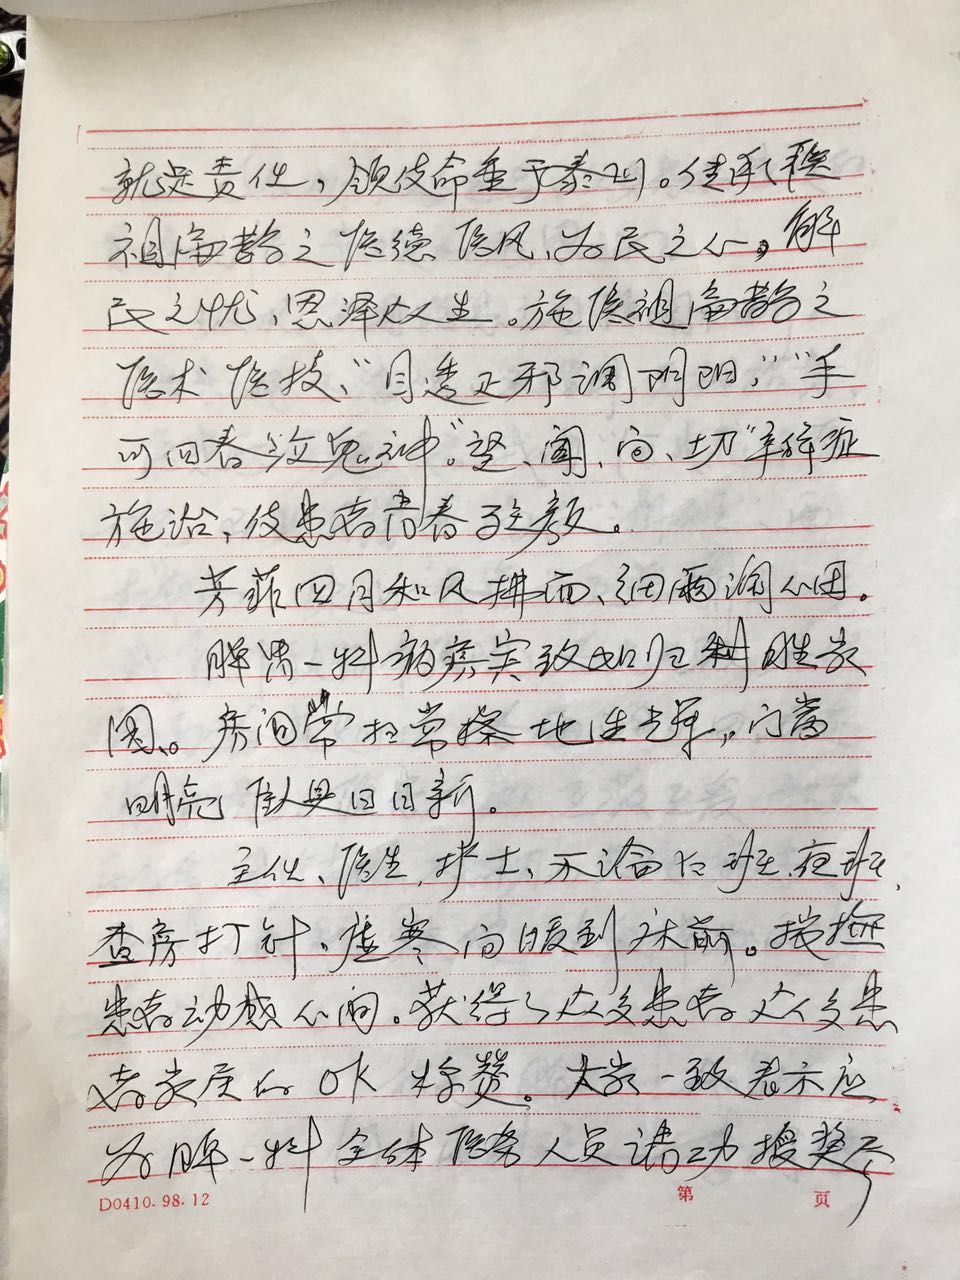 就是责任，领使命重于泰山。传承医
祖扁鹊之医德医风、为民之心，解
民之忧、恩泽众生。施医祖扁鹊之
医术医技、“目透正邪调阴阳”，“手
可回春泣鬼神”。望、闻、问、切“辛辩症
施治，使患者青春驻颜。
芳菲四月和风拂面、细雨润心田。
脾胃一科病房宾致如归科胜家
园、。房间常扫常擦地生光辉，，门窗
明亮 傢具日日新。
主任、医生、护士、不论白班、夜班、
查房打针，虚寒问暖到床前。
患者动感心间。获得了众多患者众多患
者家属的OK称赞。大家一致表示应
为脾一科全体医务人员请功授奖
D0410.98.12 第 页